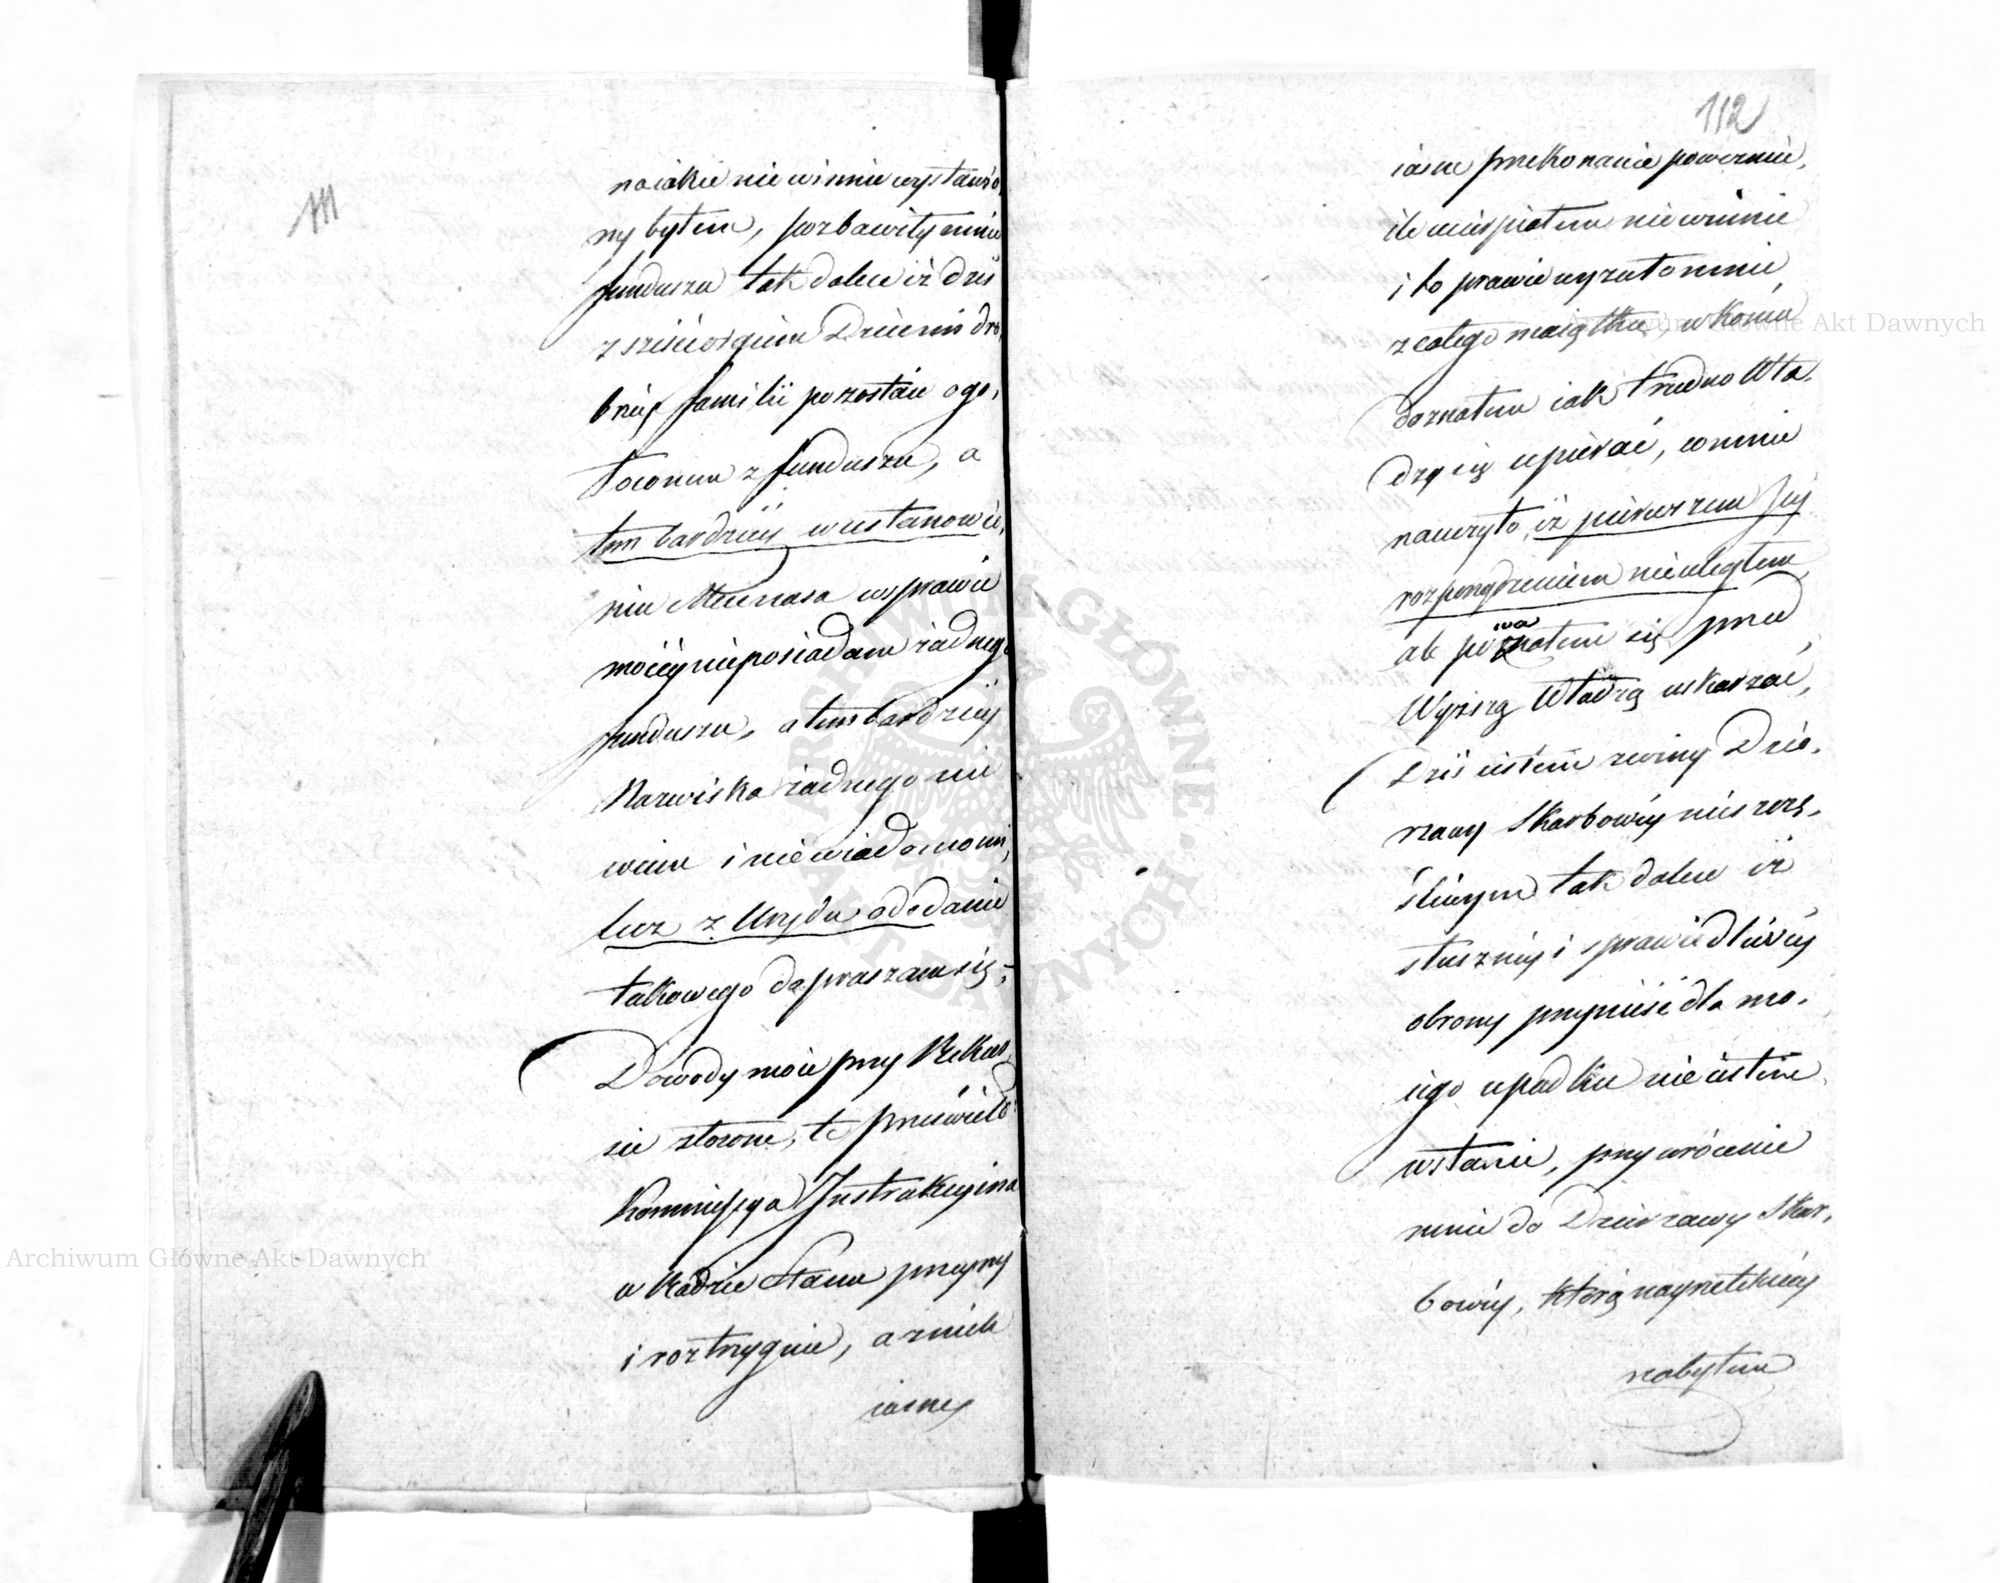 111
na iakie nie winnie wystawio,
ny byłem, pozbawiły mnie
funduszu tak dalece iż dziś
z sześciorgiem Dziećmi dro,
bnéj familii pozostaię ogo,
łocony z funduszu, a
tem bardziéj w ustanowie,
niu Mecenasa w sprawie
moiéj nieposiadam żadnego
funduszu, a tem bardziéj
Nazwiska żadnego nie
wiem i niewiadomomi,
lecz z Urzędu o dodanie
takowego dopraszam się,
Dowody moie przy Rekur,
sie złożone, te prześwietł:
Kommissya Instrukcyina
w Radzie Stanu przeyrzy
i roztrzygnie, a z nich
iasne
112
iasne przekonanie poweźmie,
ile ucierpiałem niewinnie
i to prawie wyzuto mnie,
z całego maiątku, w końcu
doznałem iak trudno Wła,
dzą się upierać, co mnie
nauczyło, iż pierwszem Jéj
rozporządzeniem nie uległem,
ale poważałem się przed
Wyższą Władzą uskarżać,
Dziś iestem z winy Dzie,
rżawy Skarbowéj nieszczę,
śliwym tak dalece iż
słusznéj i sprawiedliwéj
obrony przynieść dla mo,
iego upadku nie iestem
w stanie, przywrócenie
mnie do Dzierżawy Skar,
bowéj, którą nayrzetelniéj
nabyłem
Archiwum Główne Akt Dawnych
Archiwum Główne Akt Dawnych
ARCHIWUM GŁÓWNE AKT DAWNYCH